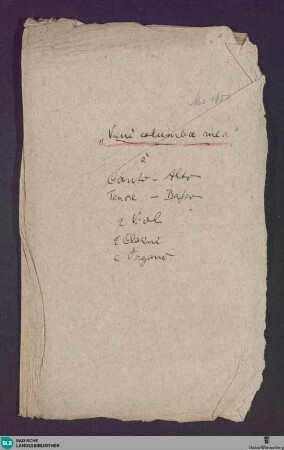 „Veni columba mea“
à
Canto - Alto
Tenore - Basso
2 Viol
2 Clarini
e Organo
BLB BADISCHE
LANDESBIBLIOTHEK
Baden-Württemberg